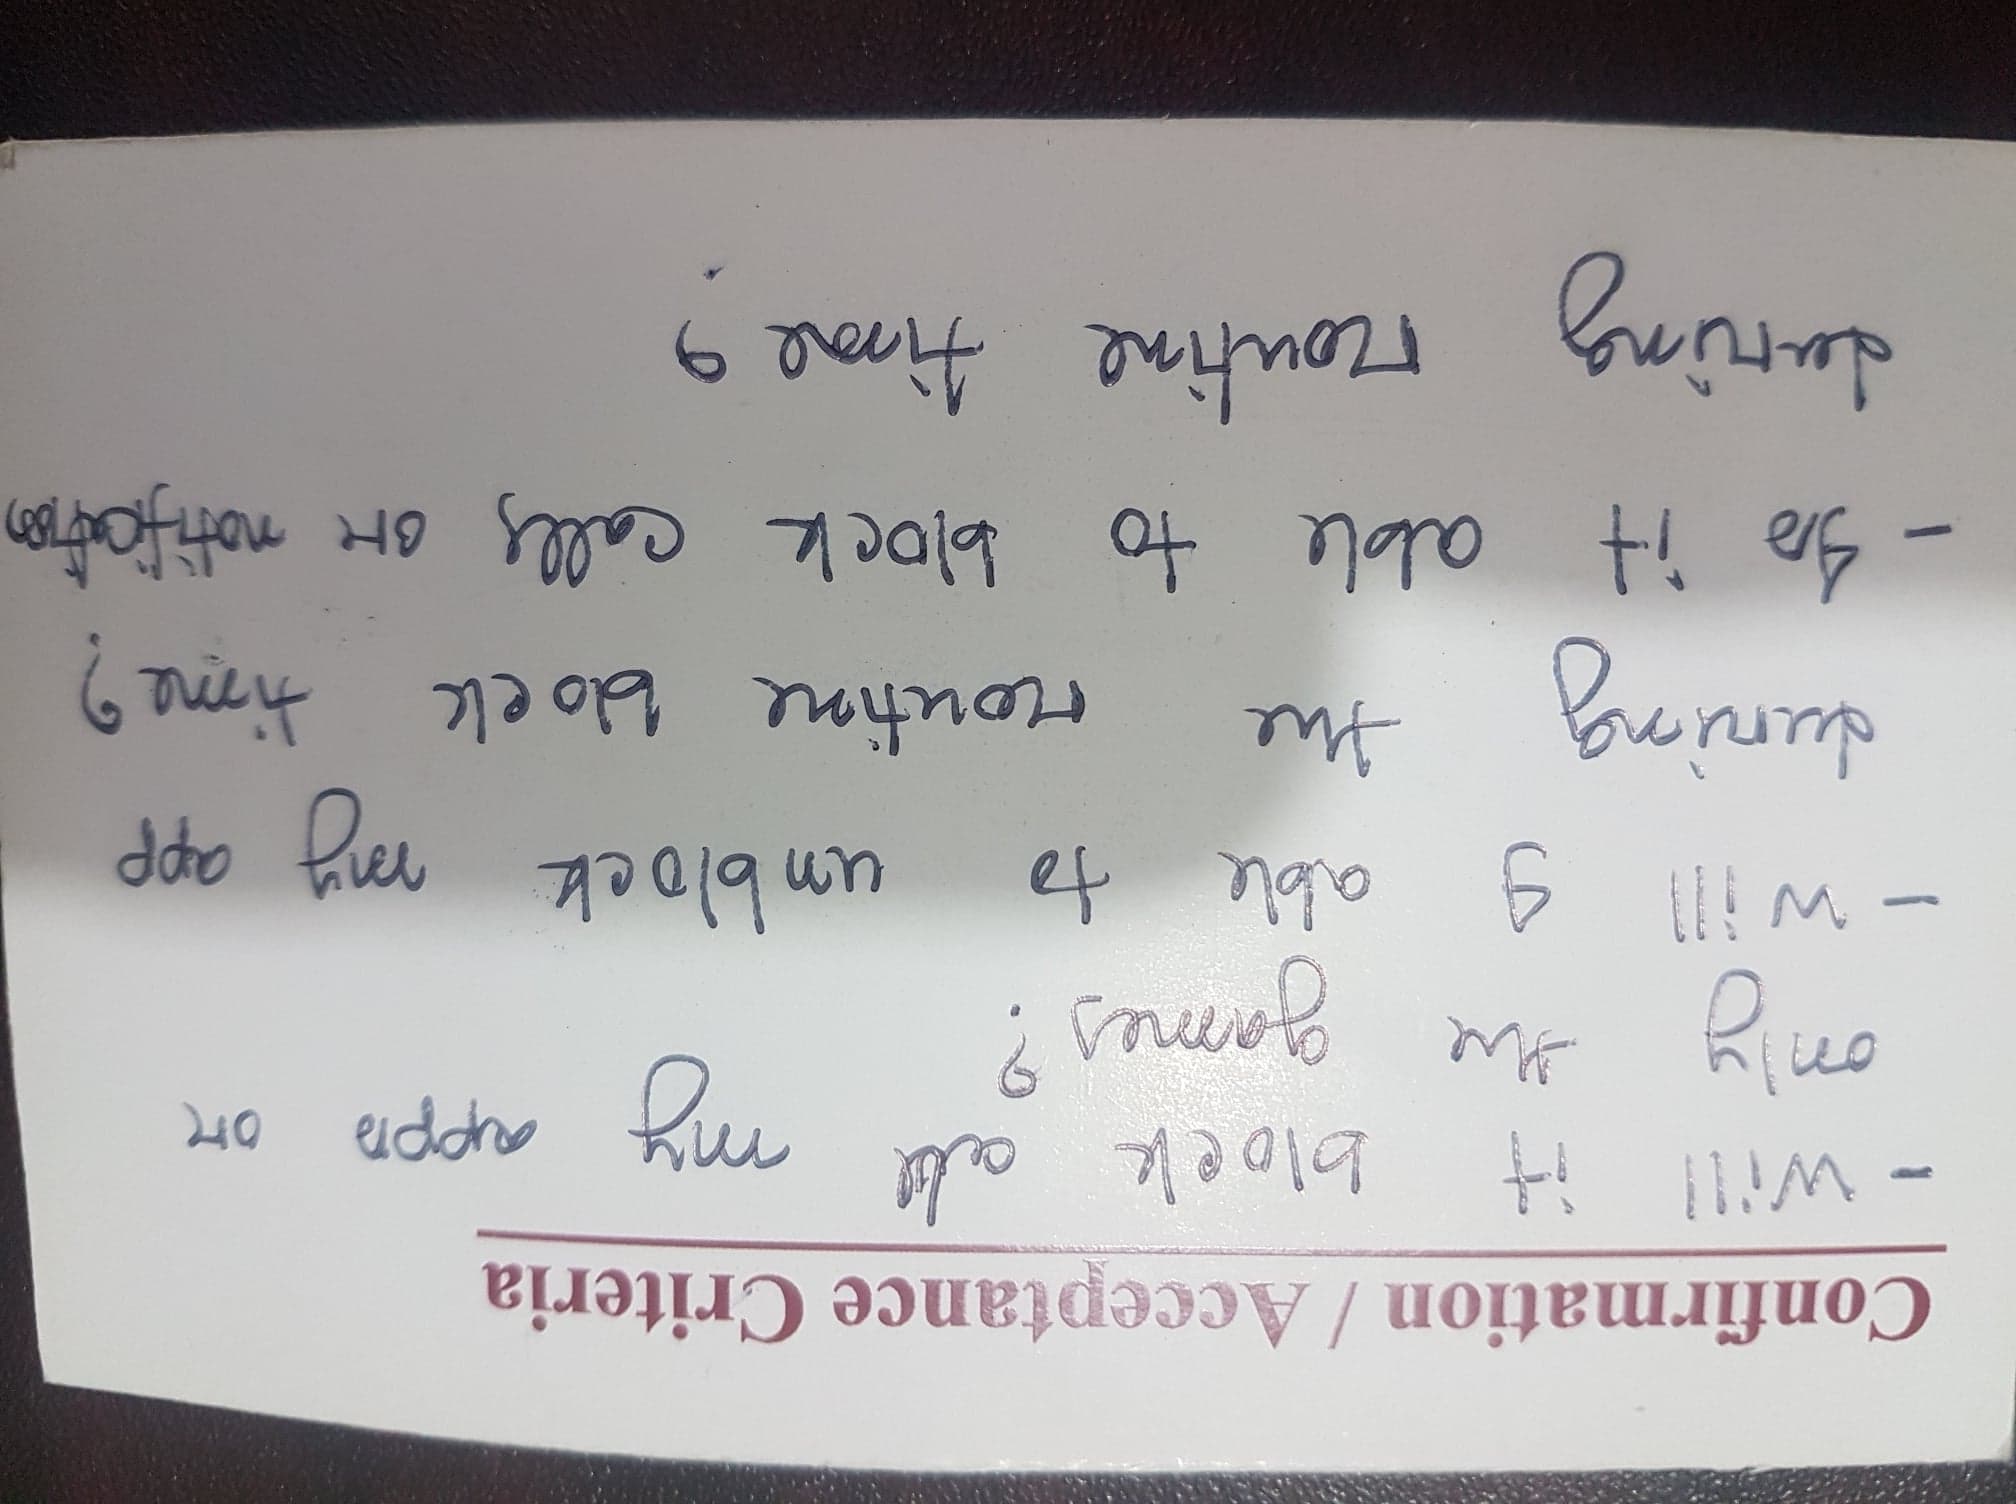 Confirmation / Acceptance Criteria
- Will it block all my apps or
only the games?
- Will I able to unblock my app
during the routine block time?
- Is it able to block calls or notification
during routine time?